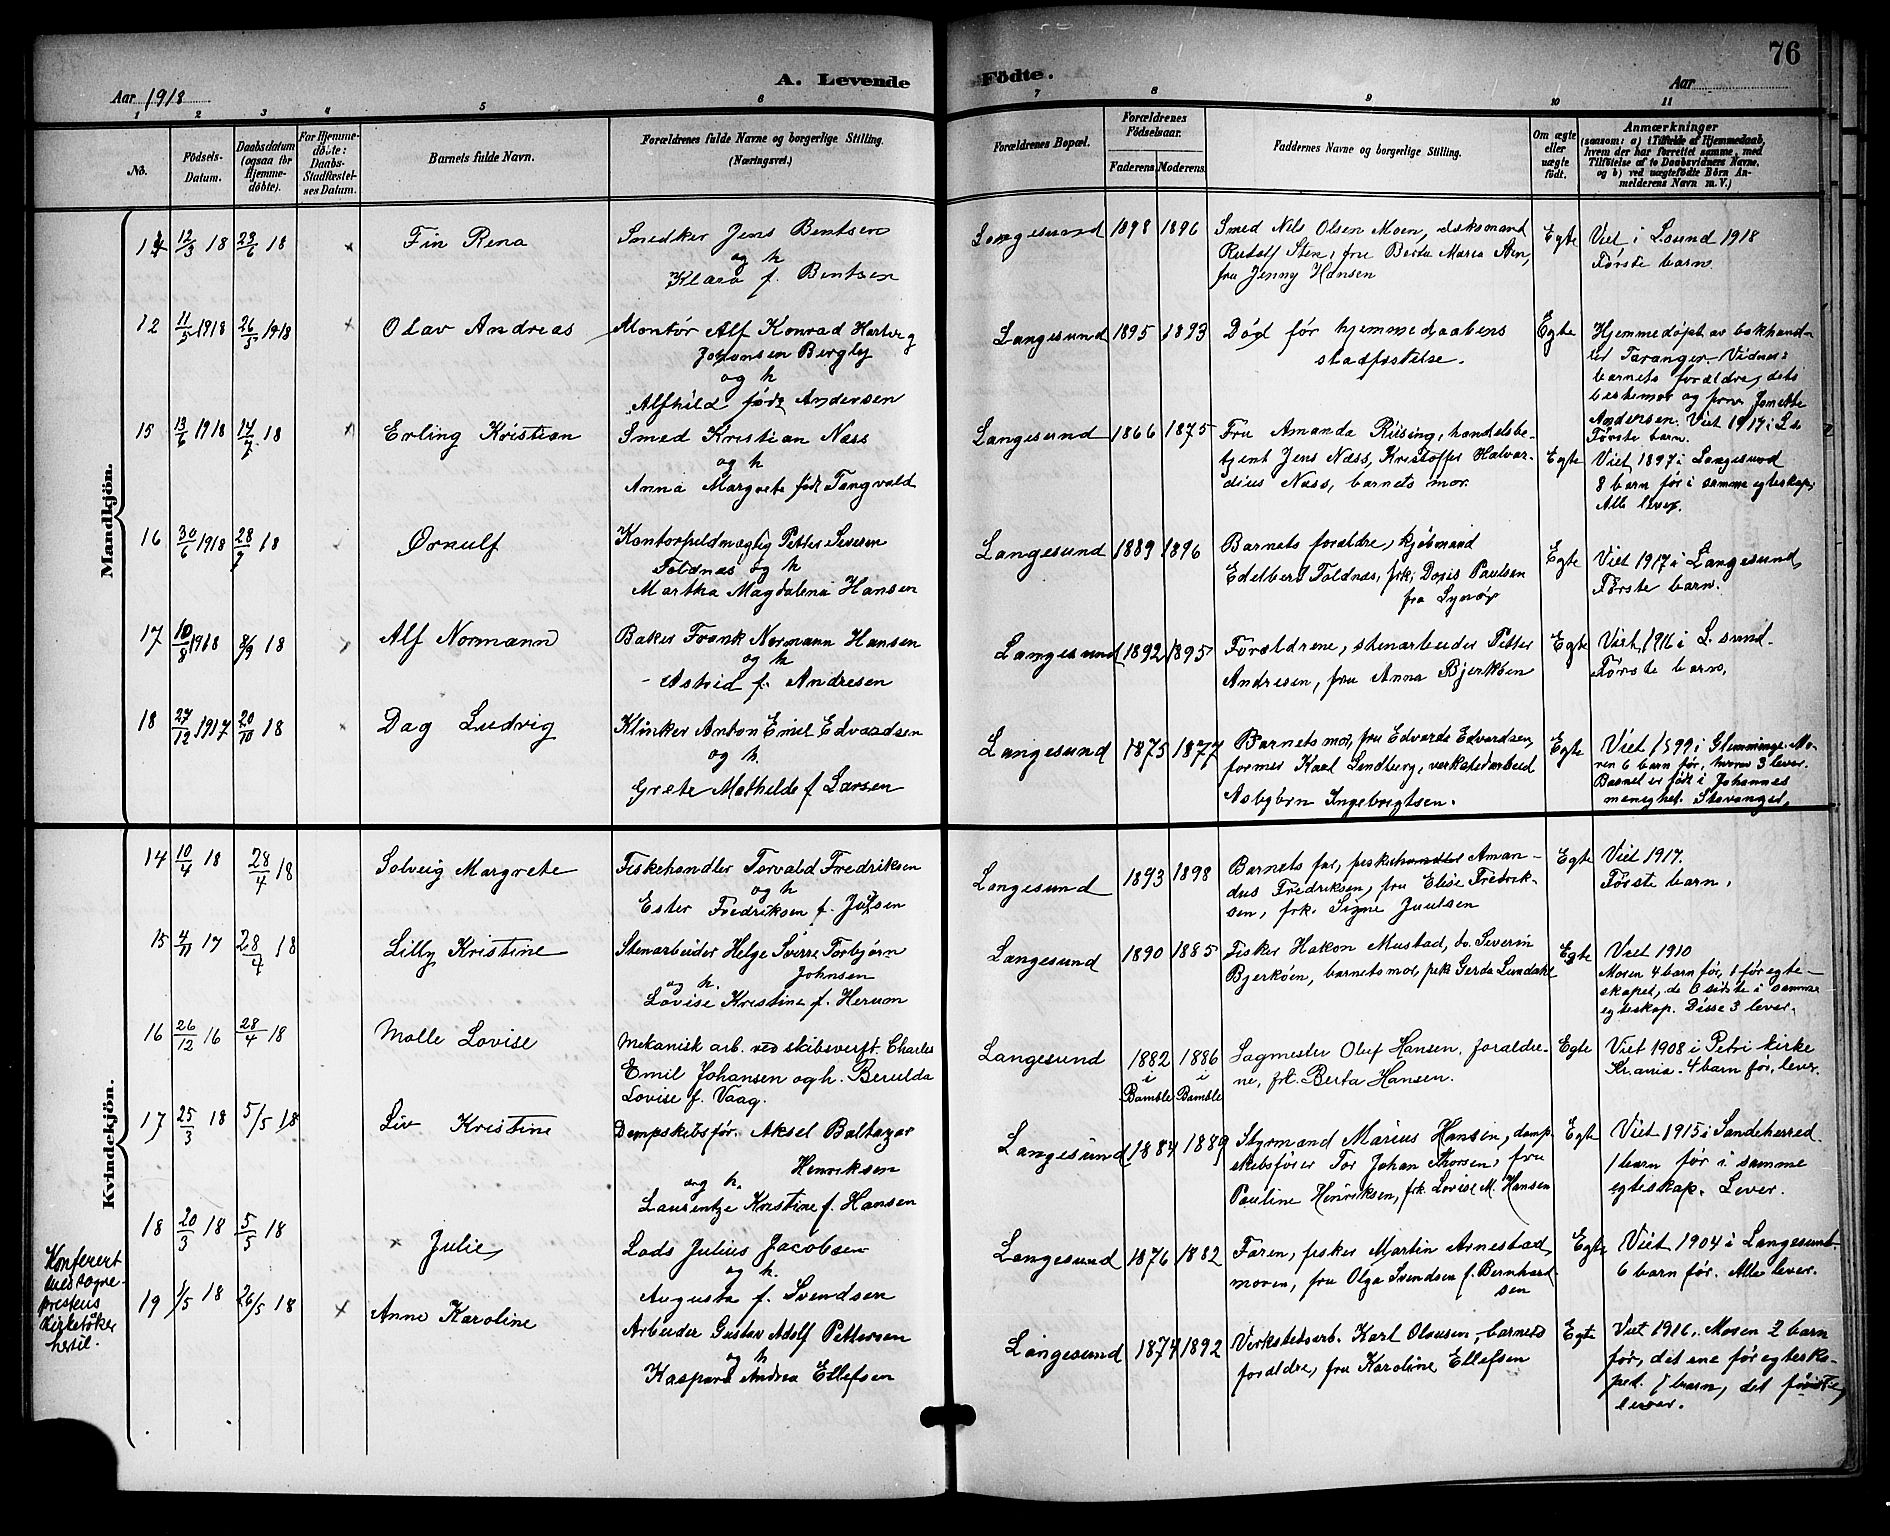 76
A. Levende Födte.
Aar 1918
Aar
1 2 3 4 5 6 7 8 9 10 11
No.
Födsels-Datum.
Daabsdatum (ogsaa for Hjemmedöbte).
For Hjemmedöbte: Daabs-Stadfæstelses Datum.
Barnets fulde Navn.
Forældrenes fulde Navne og borgerlige Stilling. (Næringsvei.)
Forældrenes Bopæl.
Forældrenes Födselsaar.
Faderens Moderens
Faddernes Navne og borgerlige Stilling.
Om ægte eller uægte födt.
Anmærkninger
(saasom: a) i Tilfælde af Hjemmedaab, hvem der har forrettet samme, med Tilföielse af to Daabsvidners Navne, og b) ved uægtefödte Börn Anmelderens Navn m. V.)
Mandkjön.
12/3 18 23/6 18 × Fin Rena
Snedker Jens Bentsen
og h
Klara f. Bentsen
Langesund 1898 1896
Smed Nils Olsen Moen,
Rudolf Sten, fru Berta Maria Sten,
fru Jenny Hansen
Egte
Viet i L.sund 1918
Første barn
12 11/5 1918 26/5 1918 × Olav Andreas
Montør Alf Konrad Hartvig
Johansen Bergly
og h
Alfhild født Andersen
Langesund 1895 1893
Død før hjemmedaabens
stadfæstelse.
Egte
Hjemmedøpt av bokhand-
ler Taranger. Vidner:
barnets forældre, dets
bestemor og frøken Jonette
Andersen. Viet 1917 i L.s.
Første barn.
15 13/6 1918 14/7 18 × Erling Kristian
Smed Kristian Næss
og h
Anna Margrete født Tangvald
Langesund 1866 1875
Fru Amanda Riising, handelsbe-
tjent Jens Næss, Kristoffer Halvar-
dius Næss, barnets mor.
Egte
Viet 1897 i Langesund
8 barn før i samme egteskap,
Alle lever.
16 30/6 1918 28/7 18 Ørnulf
Kontorfuldmægtig Petter Severin
Foldnæs og h
Martha Magdalena Hansen
Langesund 1889 1896
Barnets forældre, kjøbmand
Edelbert Foldnæs, frk. Doris Paulsen
fra Lyngør
Egte
Viet 1917 i Langesund,
Første barn.
17 10/8 1918 8/9 18 Alf Normann
Baker Frank Normann Hansen
og h
Astrid f. Andresen
Langesund 1892 1895
Forældrene, stenarbeider Petter
Andresen, fru Anna Bjerkøen
Egte
Viet 1916 i L.sund.
Første barn.
18 27/12 1917 20/10 18 Dag Ludvig
Klinker Anton Emil Edvardsen
og h.
Grete Mathilde f Larsen
Langesund 1875 1877
Barnets mor, fru Edvarda Edvardsen,
former Karl Lindberg, verkstedarbeid
Asbjørn Ingebregtsen.
Egte
Viet 1899 i Glemminge. Mo-
ren 6 barn før, hvorav 3 lever.
Barnet er født i Johannes
menighet. Stavanger.
Kvindekjön.
14 10/4 18 28/4 18 Solveig Margrete
Fiskehandler Torvald Fredriksen
og h
Ester Fredriksen f. Julsen
Langesund 1893 1898
Barnets far, fiskehandler Aman-
dus Fredriksen, fru Elise Fredrik-
sen, frk. Signe Juulsen
Egte
Viet 1917.
Første barn.
15 4/11 17 28/4 18 Lilly Kristine
Stenarbeider Helge Sverre Torbjørn
Johnsen
og h.
Lovise Kristine f. Herum
Langesund 1890 1885
Fisker Hakon Mustad, do. Severin
Bjerkøen, barnets mor, frk Gerda Lundahl
Egte
Viet 1910
Moren 4 barn før, 1 før egte-
skapet, de 3 sidste i samme
egteskap. Disse 3 lever.
16 26/12 16 28/4 18 Molle Lovise
Mekanisk arb. ved skibsverft. Charles
Emil Johansen og h. Berulda
Lovise f. Vaag.
Langesund 1882 i Bamble 1886 i Bamble
Sagmester Oluf Hansen, foraldre-
ne, frk. Berta Hansen.
Egte
Viet 1908 i Petri kirke
Kr.ania. 4 barn før, lever.
17 25/3 18 5/5 18 Liv Kristine
Dampskibsfør. Aksel Baltazar
Henriksen
og h.
Laurentze Kristine f. Hansen
Langesund 1884 1889
Styrmand Marius Hansen, damp-
skibsfører Tor Johan Thorsen, fru
Pauline Henriksen, frk. Lovise M. Hansen
Egte
Viet 1915 i Sandeherred.
1 barn før i samme
egteskap. Lever.
18 20/3 18 5/5 18 × Julie
Lods Julius Jacobsen
og h.
Augusta f. Svendsen
Langesund 1876 1882
Faren, fisker Martin Arnestad,
moren, fru Olga Svendsen f. Bernhard-
sen
Egte
Viet 1904 i Langesund.
6 barn før. Alle lever.
Konferert
med sogne-
prestens
kirkebøker
hertil.
19 1/5 18 26/5 18 × Anne Karoline
Arbeider Gustav Adolf Pettersen
og h
Kaspara Andrea Ellefsen
Langesund 1874 1892
Verkstedsarb. Karl Olausen, barnets
foraldre, fru Karoline Ellefsen
Egte
Viet 1916. Moren 2 barn
før, det ene før egteska-
pet. 1 barn, det første,
lever.